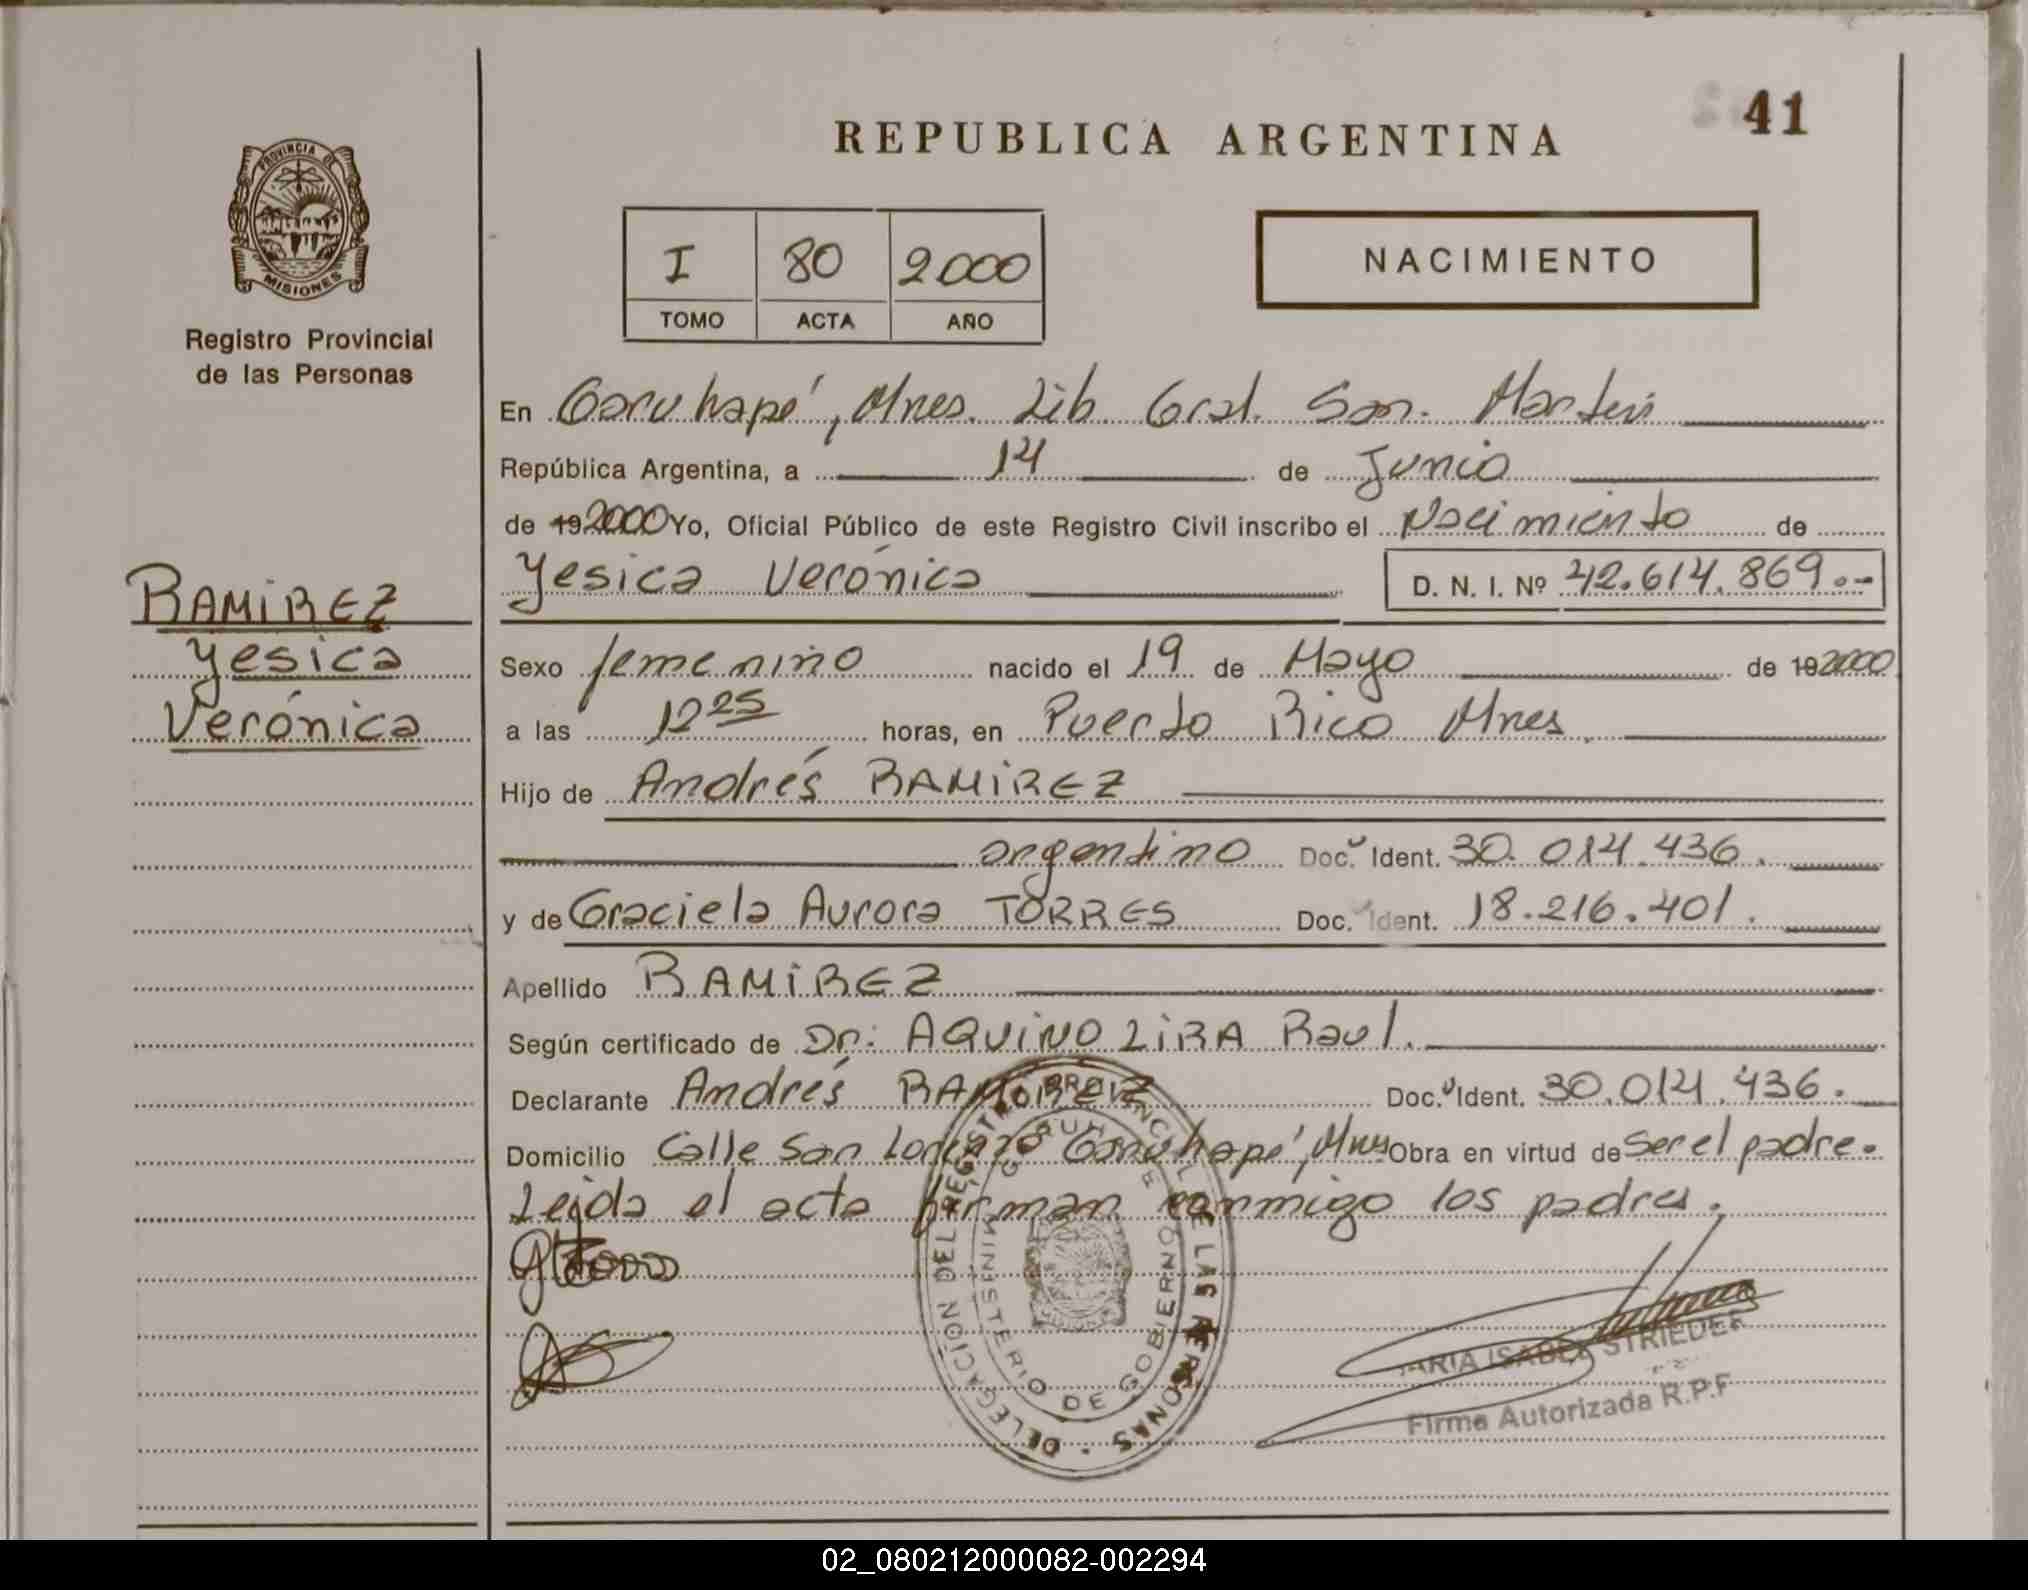 41
REPUBLICA ARGENTINA
PROVINCIA DE
MISIONES
Registro Provincial
de las Personas
I 80 2000
TOMO ACTA AÑO
NACIMIENTO
En Garuhapé, Mnes. Lib. Gral. San. Martín
República Argentina, a 14 de Junio
de 19 2000 Yo, Oficial Público de este Registro Civil inscribo el Nacimiento de
Yesica Verónica D. N. I. Nº 42.614.869.-
RAMIREZ
Yesica
Verónica
Sexo femenino nacido el 19 de Mayo de 19 2000
a las 12 25 horas, en Puerto Rico Mnes.
Hijo de Andrés RAMIREZ
argentino Doc. Ident. 30.014.436.
y de Graciela Aurora TORRES Doc. Ident. 18.216.401.
Apellido RAMIREZ
Según certificado de Dr: AQUINO LIRA Raul.
Declarante Andrés RAMIREZ Doc. Ident. 30.014.436.
Domicilio Calle San Lorenzo Garuhapé, Mnes Obra en virtud de Ser el padre.
Leida el acta firman conmigo los padres.
DELEGACIÓN DEL REGISTRO PROVINCIAL DE LAS PERSONAS
MINISTERIO DE GOBIERNO
ISABEL STRIEDER
Firma Autorizada R.P.F
02_080212000082-002294